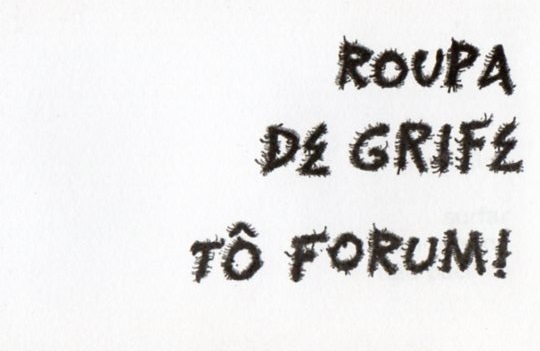 ROUPA
DE GRIFE
TÔ FORUM!